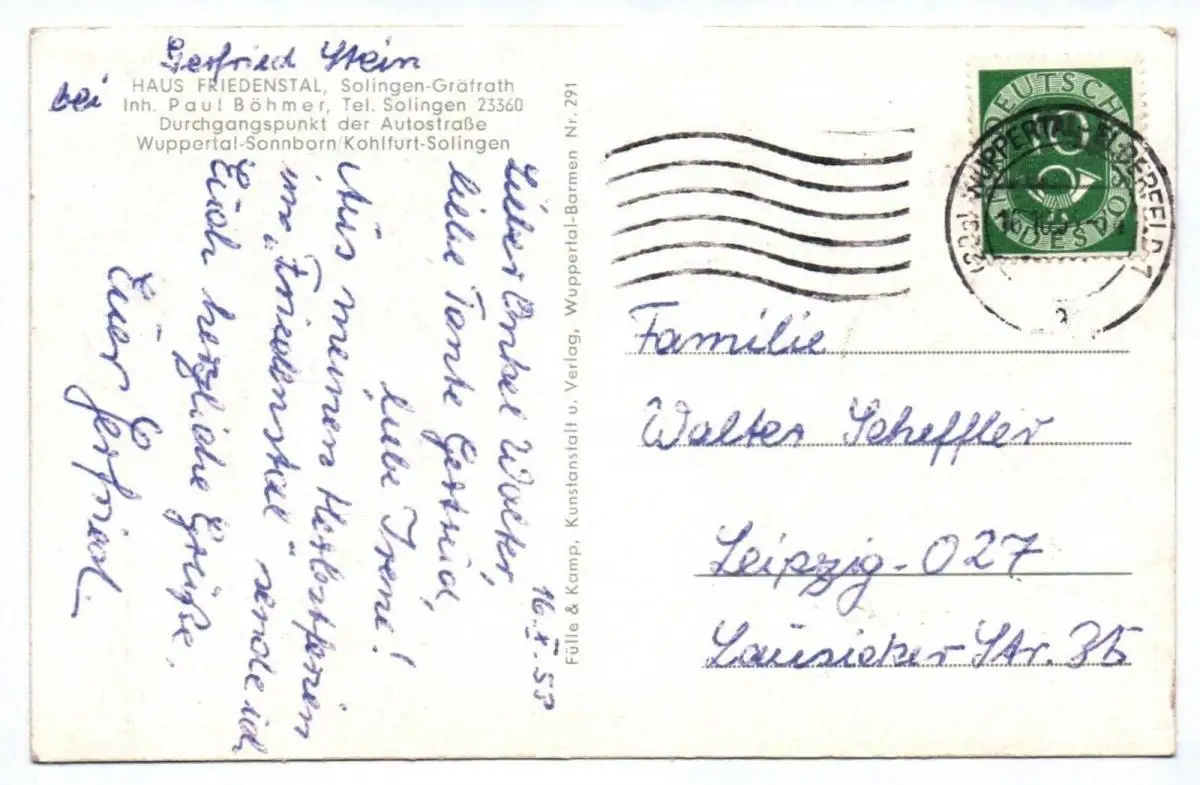 Gerfried Stein
bei
HAUS FRIEDENSTAL, Solingen-Gräfrath
Inh. Paul Böhmer, Tel. Solingen 23360
Durchgangspunkt der Autostraße
Wuppertal-Sonnborn/Kohlfurt-Solingen
16. X. 53
Lieber Onkel Walter,
liebe Tante Gertrud,
liebe Irene!
Aus meinen Herbstferien
im „Friedenstal" sende ich
Euch herzliche Grüße.
Euer Gerfried.
Fülle & Kamp, Kunstanstalt u. Verlag, Wuppertal-Barmen Nr. 291
DEUTSCHE
BUNDESPOST
10
WUPPERTAL-ELBERFELD 7
Familie
Walter Scheffler
Leipzig-O27
Lausicker Str. 35